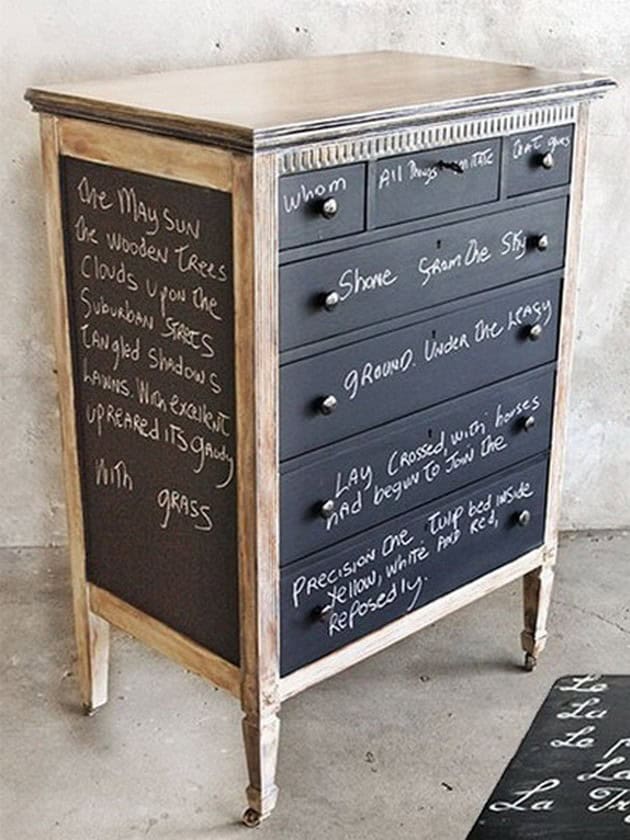 The May Sun
the wooden Trees
Clouds Upon the
Suburban Streets
Tangled Shadows
Lawns. With excellent
upreared its gaudy
With grass
Whom
All Things imitate
that gives
Shone from the Sky
ground. Under the leafy
Lay Crossed, with houses
had begun to Join the
Precision the Tulip bed inside
Yellow, White And Red,
Reposedly.
Le
La
Le
La
La